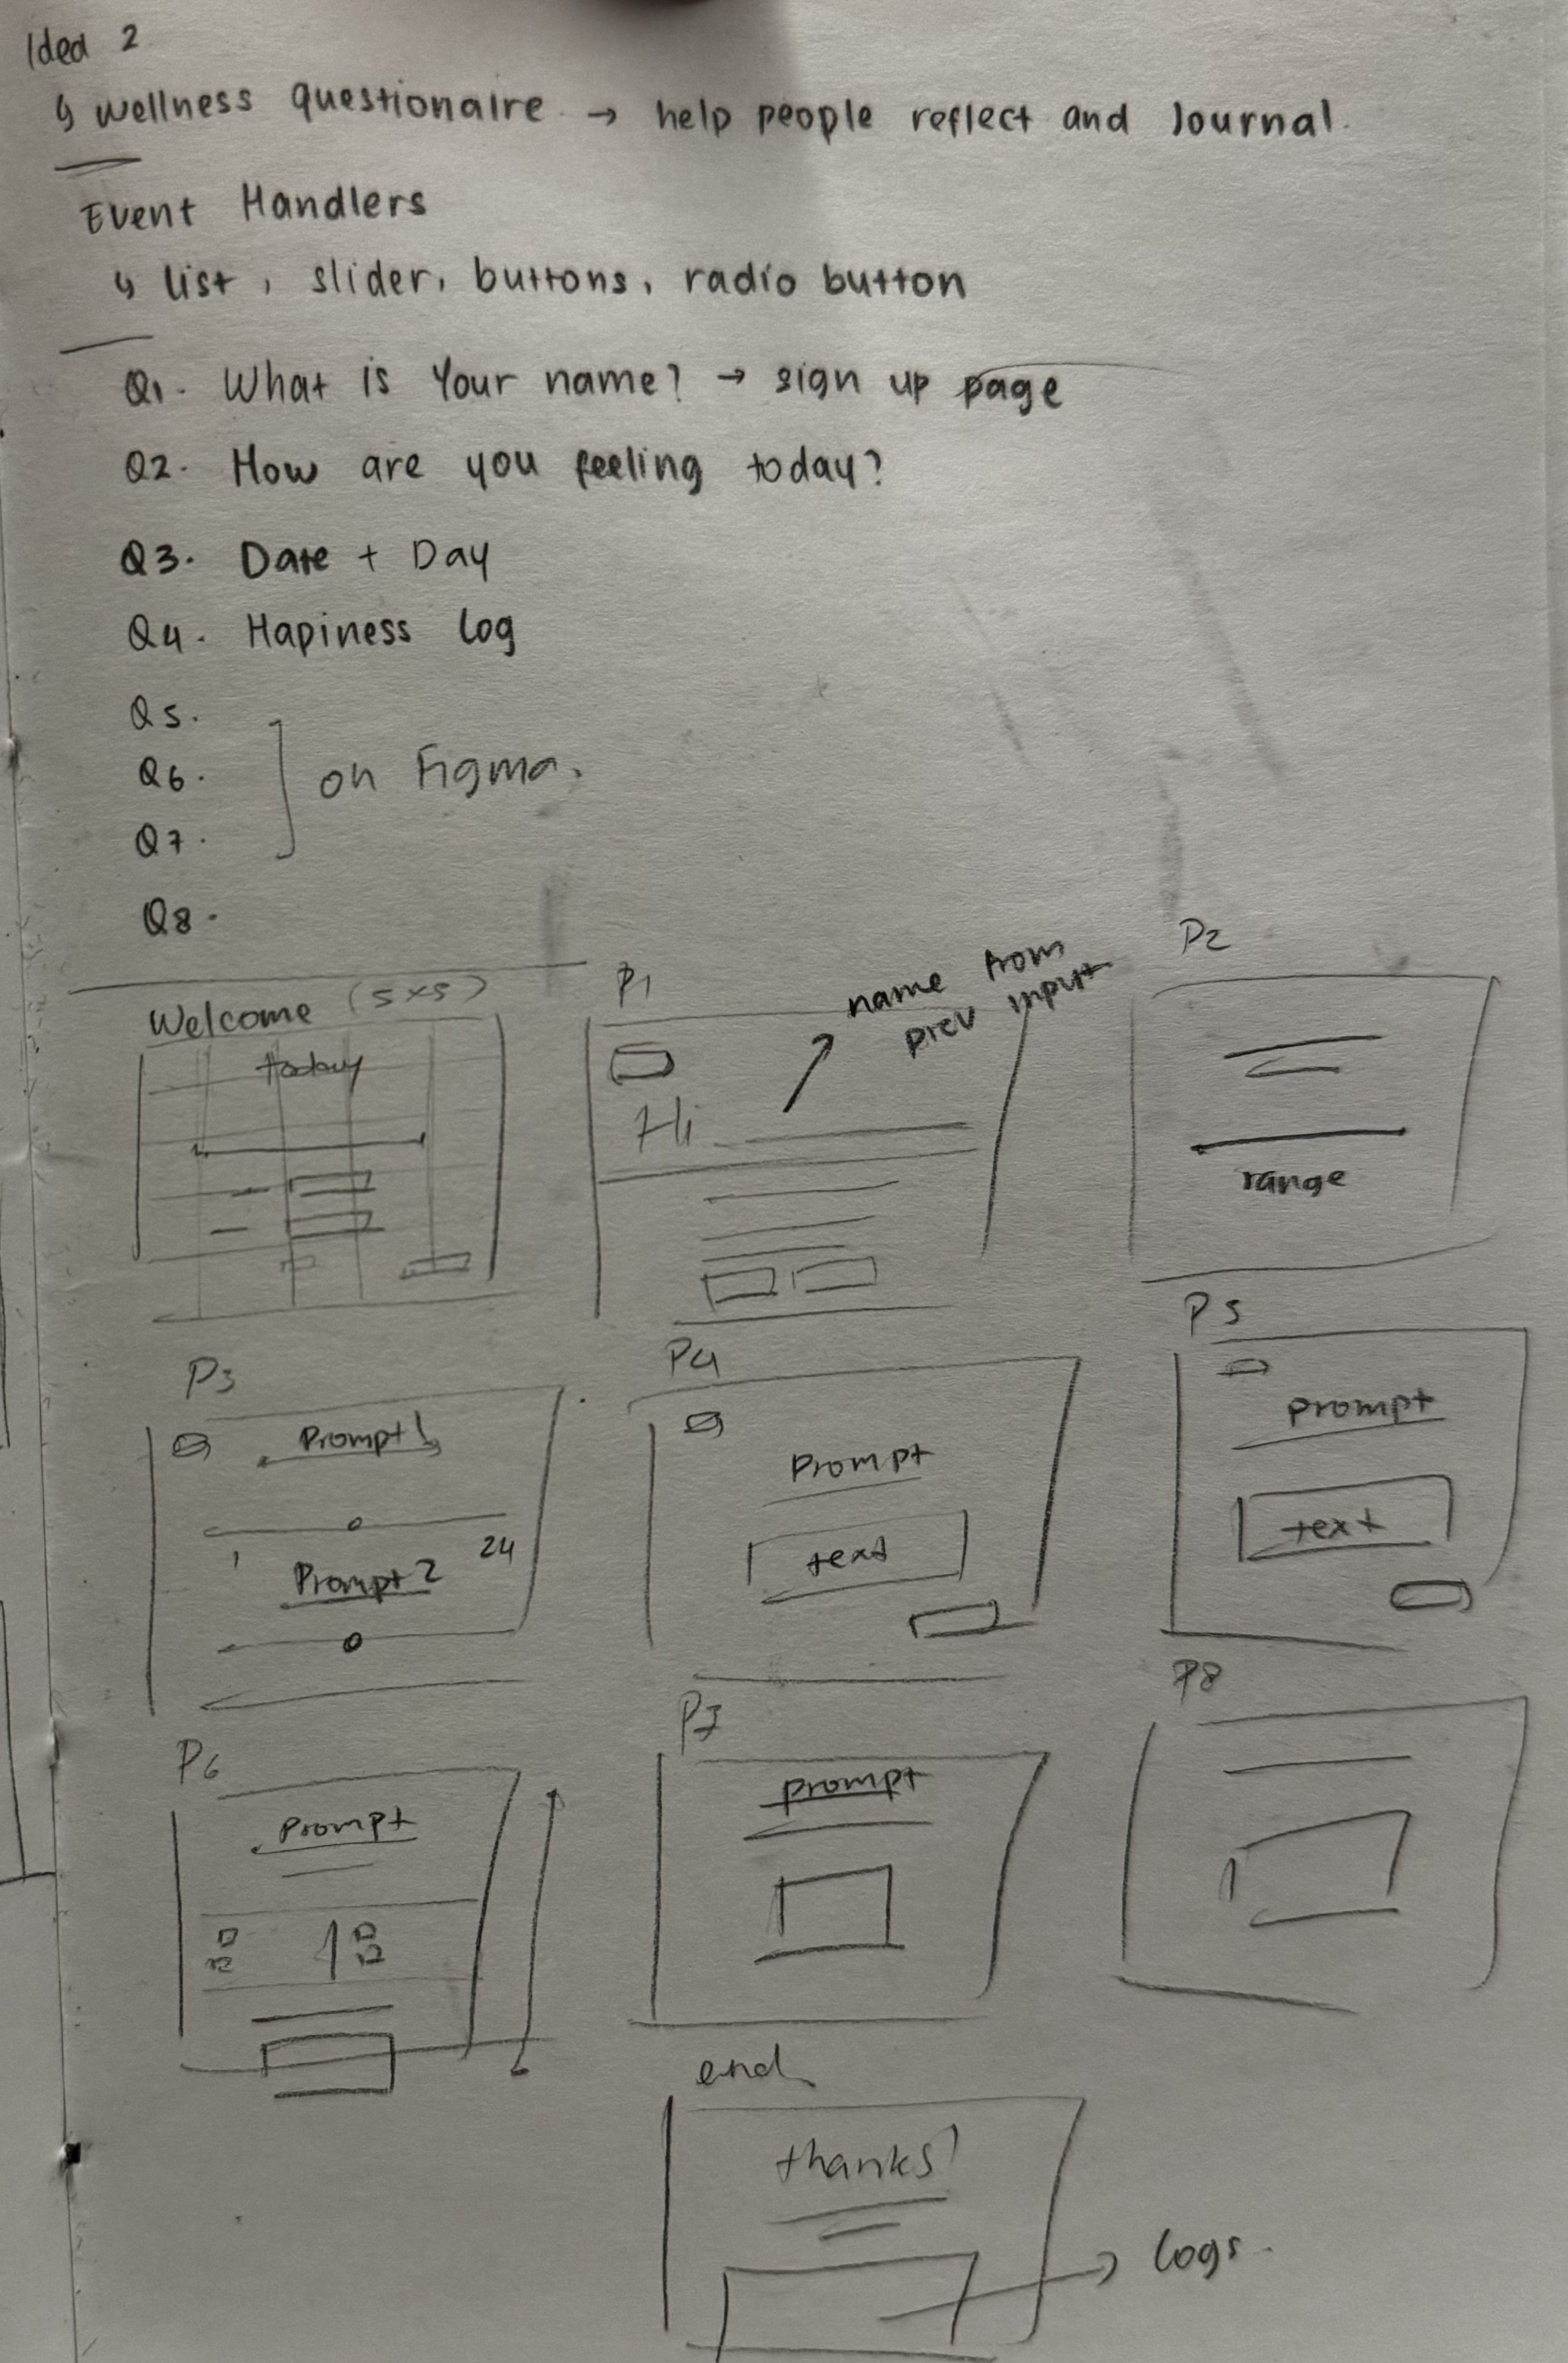 Idea 2
↳ wellness questionaire → help people reflect and Journal.
Event Handlers
↳ list, slider, buttons, radio button
Q1. What is Your name? → sign up page
Q2. How are you feeling today?
Q3. Date + Day
Q4. Hapiness log
Q5.
Q6. on Figma.
Q7.
Q8.
Welcome (5x5)
today
P1
name from
prev input
Hi
P2
range
P3
Prompt 1
1 24
Prompt 2
P4
Prompt
text
P5
prompt
text
P6
Prompt
P7
prompt
P8
end
thanks!
logs.